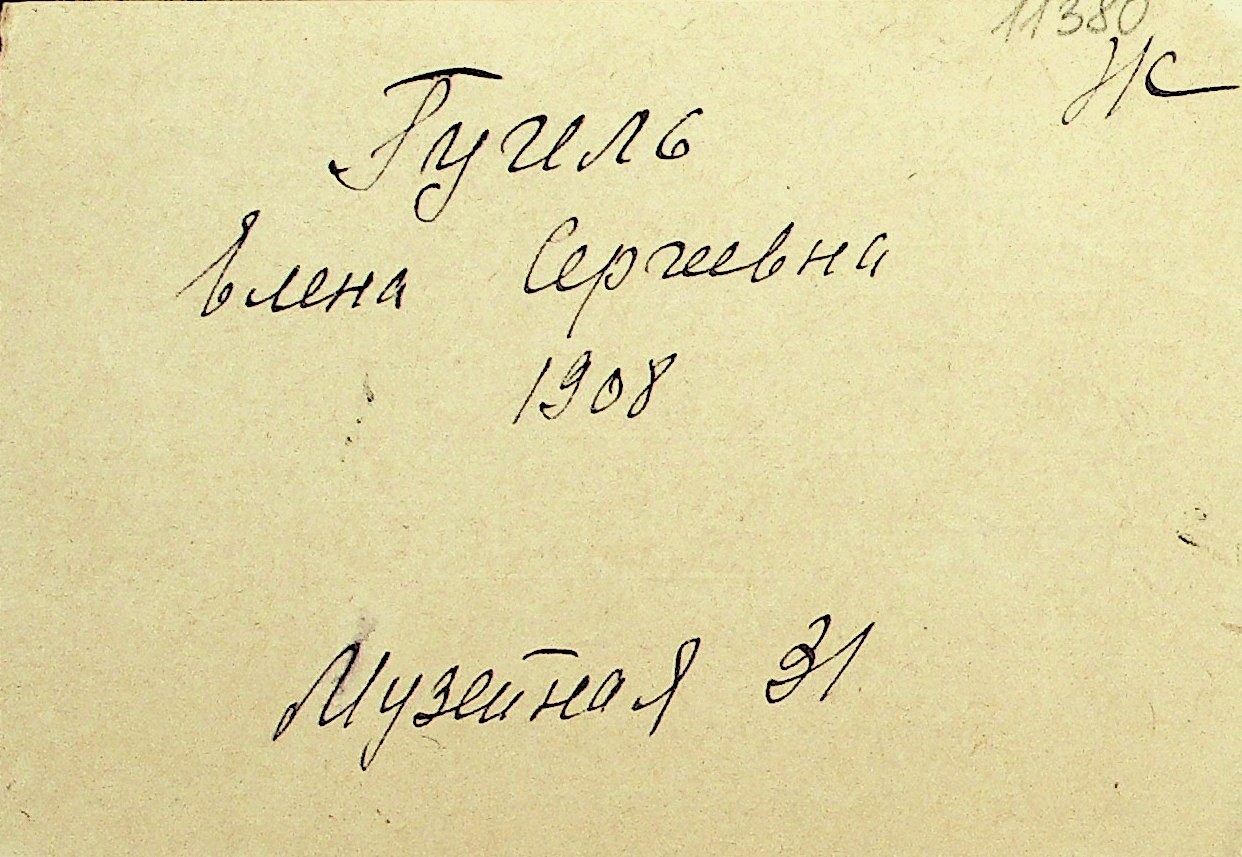 11380
Ж
Гугиль
Елена Сергеевна
1908
Музейная 31